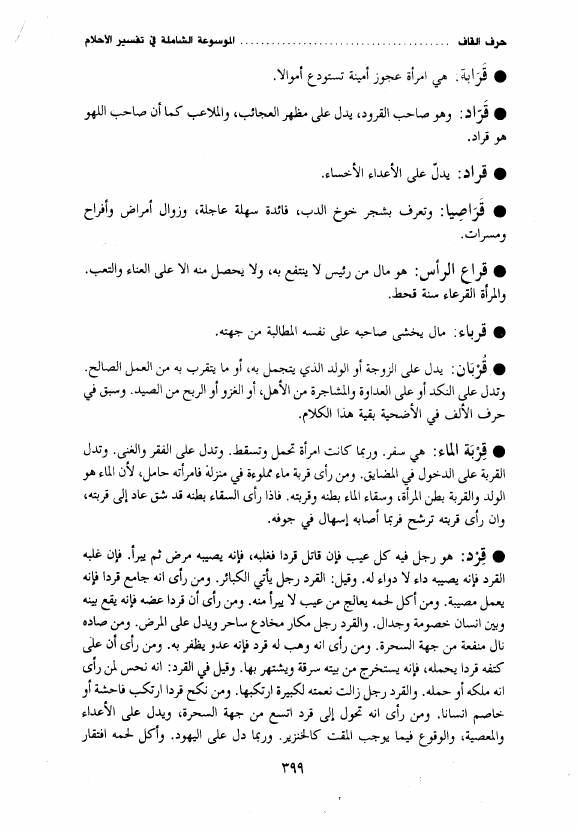 حرف القاف ........................................ الموسوعة الشاملة في تفسير الأحلام
● قَرَابة: هي امرأة عجوز أمينة تستودع أموالا.
● قَرّاد: وهو صاحب القرود، يدل على مظهر العجائب، والملاعب كما أن صاحب اللهو
هو قراد.
● قراد: يدلّ على الأعداء الأخساء.
● قَرَاصيا: وتعرف بشجر خوخ الدب، فائدة سهلة عاجلة، وزوال أمراض وأفراح
ومسرات.
● قراع الرأس: هو مال من رئيس لا ينتفع به، ولا يحصل منه الا على العناء والتعب.
والمرأة القرعاء سنة قحط.
● قرباء: مال يخشى صاحبه على نفسه المطالبة من جهته.
● قُرْبَان: يدل على الزوجة أو الولد الذي يتجمل به، أو ما يتقرب به من العمل الصالح.
وتدل على النكد أو على العداوة والمشاجرة من الأهل، أو الغزو أو الربح من الصيد. وسبق في
حرف الألف في الأضحية بقية هذا الكلام.
● قِرْبَة الماء: هي سفر. وربما كانت امرأة تحمل وتسقط. وتدل على الفقر والغنى. وتدل
القربة على الدخول في المضايق. ومن رأى قربة ماء مملوءة في منزله فامرأته حامل، لأن الماء هو
الولد والقربة بطن المرأة، وسقاء الماء بطنه وقربته. فاذا رأى السقاء بطنه قد شق عاد إلى قربته،
وان رأى قربته ترشح فربما أصابه إسهال في جوفه.
● قِرْد: هو رجل فيه كل عيب فإن قاتل قردا فغلبه، فإنه يصيبه مرض ثم يبرأ. فإن غلبه
القرد فإنه يصيبه داء لا دواء له. وقيل: القرد رجل يأتي الكبائر. ومن رأى انه جامع قردا فإنه
يعمل مصيبة. ومن أكل لحمه يعالج من عيب لا يبرأ منه. ومن رأى أن قردا عضه فإنه يقع بينه
وبين انسان خصومة وجدال. والقرد رجل مكار مخادع ساحر ويدل على المرض. ومن صاده
نال منفعة من جهة السحرة. ومن رأى انه وهب له قرد فإنه عدو يظفر به. ومن رأى أن على
كتفه قردا يحمله، فإنه يستخرج من بيته سرقة ويشتهر بها. وقيل في القرد: انه نحس لمن رأى
انه ملكه أو حمله. والقرد رجل زالت نعمته لكبيرة ارتكبها. ومن نكح قردا ارتكب فاحشة أو
خاصم انسانا. ومن رأى انه تحول إلى قرد اتسع من جهة السحرة، ويدل على الأعداء
والمعصية، والوقوع فيما يوجب المقت كالخنزير. وربما دل على اليهود. وأكل لحمه افتقار
٣٩٩